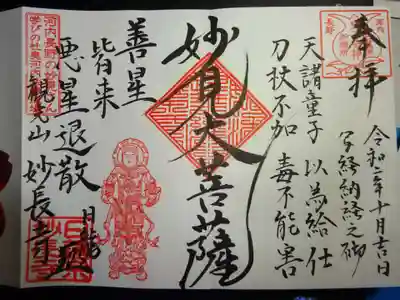 奉拝
令和二年十月吉日
写経納経之砌
天諸童子 以為給仕
刀杖不加 毒不能害
妙見大菩薩
善星
皆来
悪星退散
観心山妙長寺
日
河内長野の妙見さん